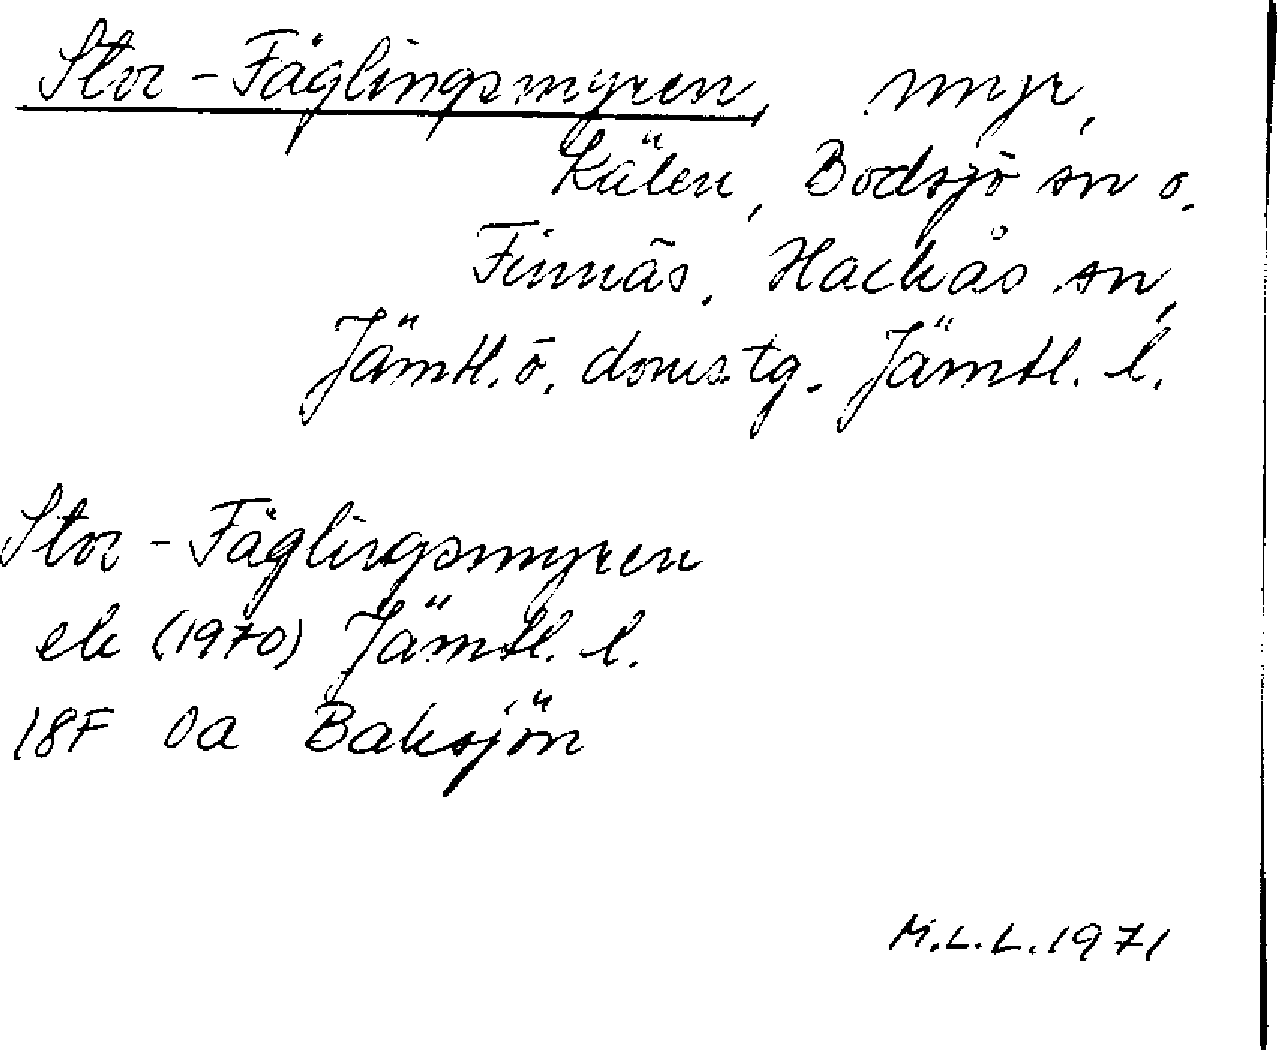 Stor-Fäglingsmyren, myr,
Kälen, Bodsjö sn o.
Finnäs, Hackås sn,
Jämtl. ö. doms.tg. Jämtl. l.
Stor-Fäglingsmyren
ek (1970) Jämtl. l.
18F 0a Baksjön
M.L.L. 1971